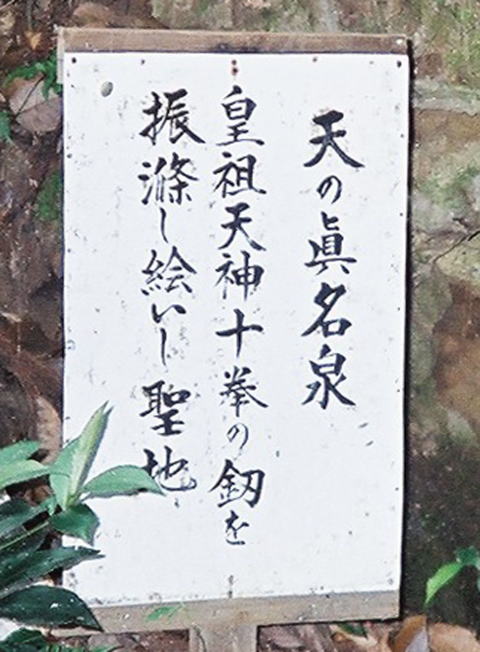 天の眞名泉
皇祖天神十拳の釼を
振滌し絵いし聖地